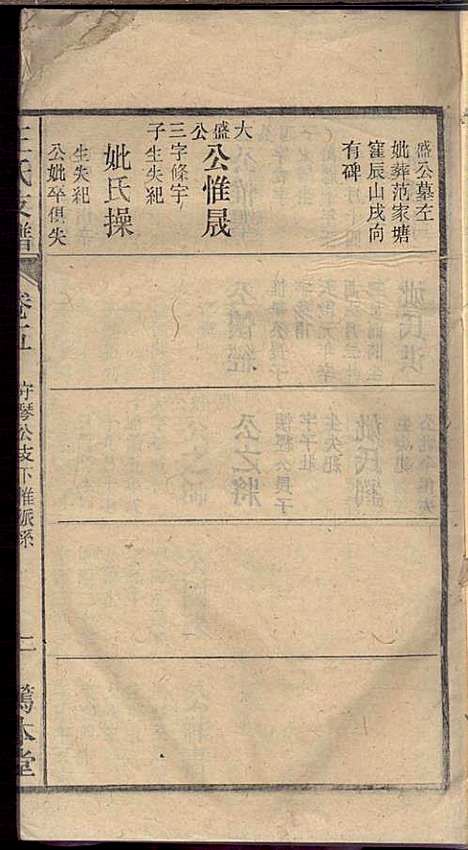 盛公墓左
妣葬范家塘
窪辰山戌向
有碑
大盛公三子
公惟晟
字條宇
生失紀
妣氏操
生失紀
公妣卒俱失
氏支譜
卷五
琴公支下惟派系
二
篤本堂